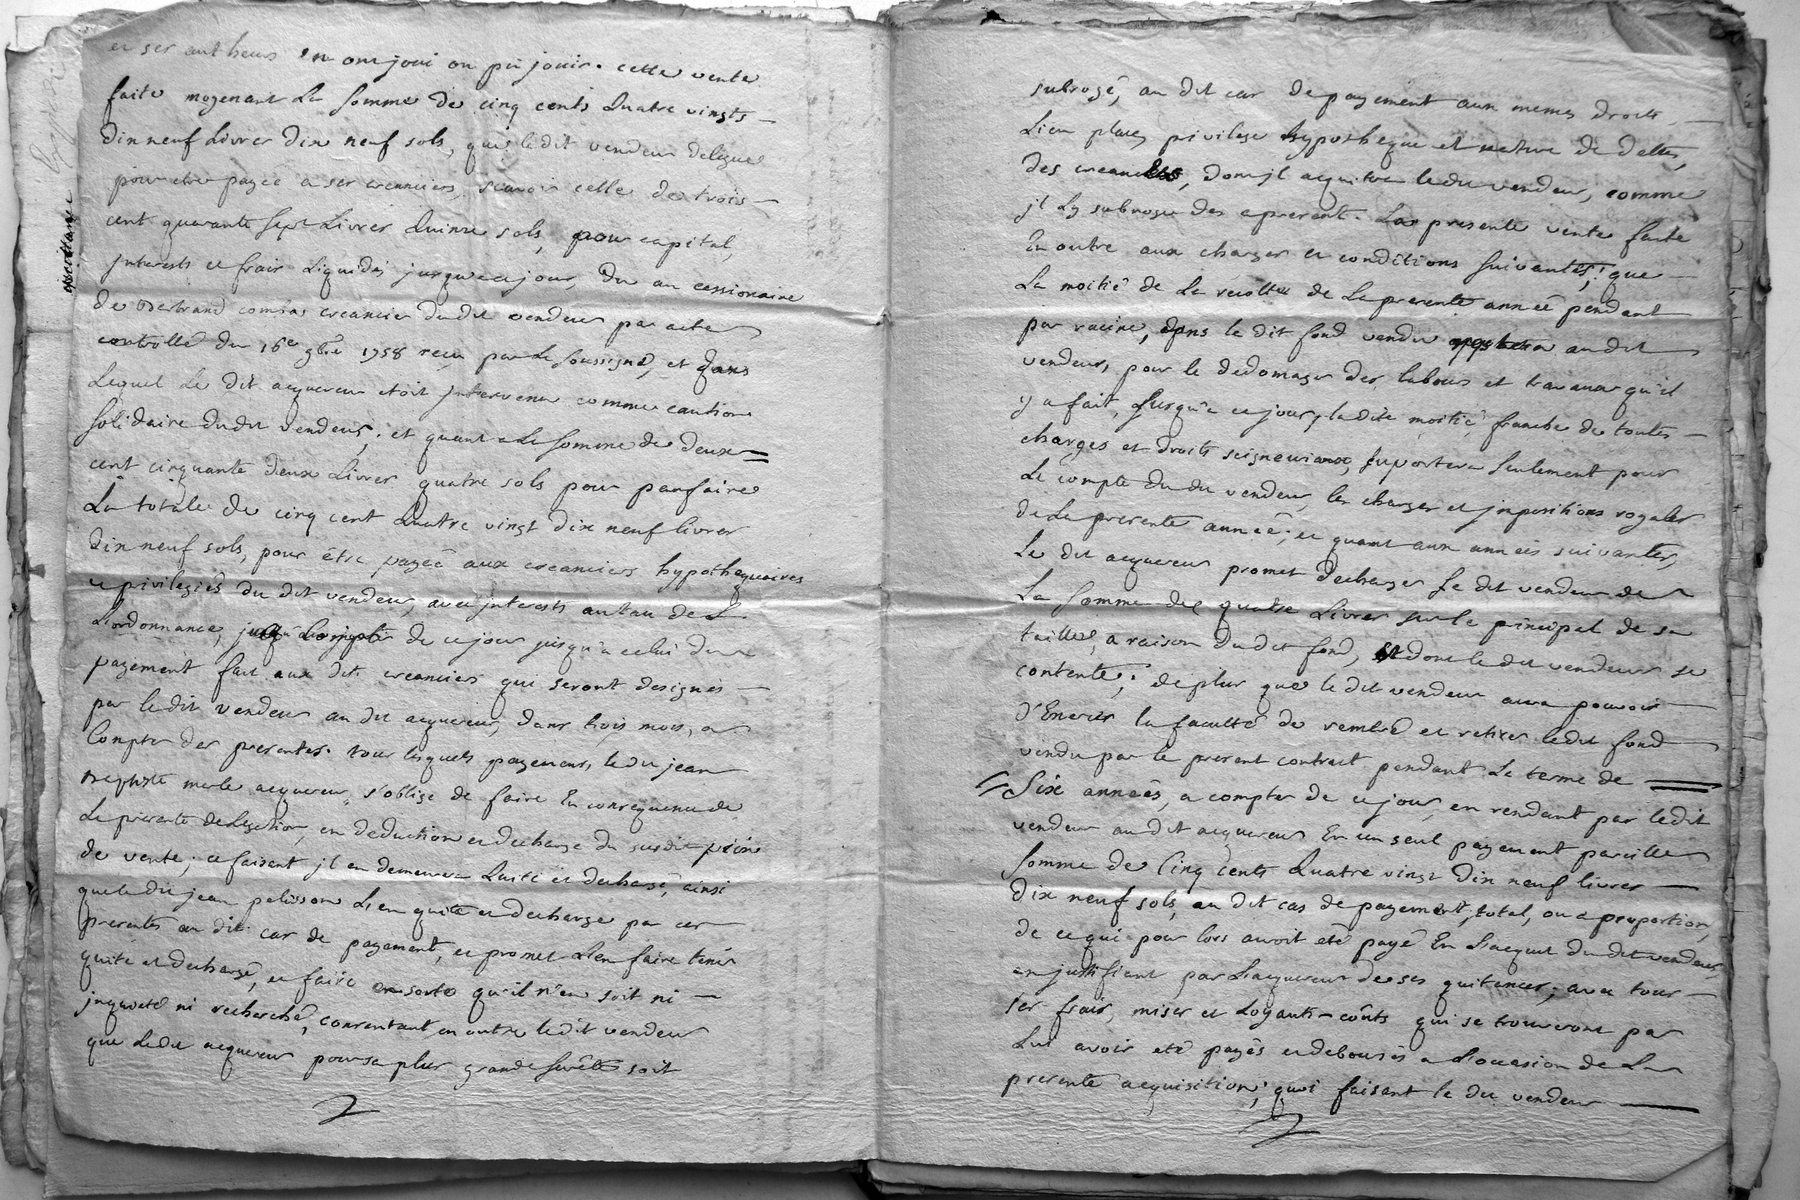 et ses autheurs en ont joui ou pû jouir. cette vente
faite moyenant La somme de cinq cents Quatre vingts
dix neuf Livres dix neuf sols, que ledit vendeur delegue
pour etre payée a ses creanciers, scavoir celle de trois
cent quarante sept Livres Quinze sols, pour capital,
jnterests et frais Liquidés jusqua ce jour, du au cessionaire
de Bertrand combas creancier dudit vendeur par acte
controllé du 16e 9bre 1758 reçu par Le soussigné, et dans
Lequel Le dit acquereur etoit jntervenu comme caution
solidaire dudit vendeur; et quant a La somme de deux
cent cinquante deux Livres quatre sols pour parfaire
La totale de cinq cent Quatre vingt dix neuf livres
dix neuf sols, pour être payée aux creanciers hypothequaires
et privilegiés du dit vendeur, avec jnterests au tau de L
L'ordonnance, a compter de ce jour jusqu'a celui du
payement fait aux dits creanciers qui seront designés
par ledit vendeur au dit acquereur, dans trois mois, a
Compter des presentes. tous lesquels payemens, ledit jean
Baptiste merle acquereur s'oblige de faire En consequence de
La presente delegation, en deduction et decharge du susdit prix
de vente; ce faisant jl en demeurera Quitte et dechargé, ainsi
que ledit jean pelisson L'en quitte et decharge par ces
presentes au dit cas de payement, et promet L'en faire tenir
quitte et dechargé, et faire en sorte qu'il n'en soit ni
jnquieté ni recherché, consentant en outre ledit vendeur
que Ledit acquereur pour sa plus grande sûreté soit
quittance
subrogé, au dit cas de payement aux memes droits,
Lieu place, privilege hypotheque et nature de dettes,
des creanciers, dont jl acquitera ledit vendeur, comme
jl L'y subroge des apresent. La presente vente faite
En outre aux charges et conditions suivantes; que
La moitié de La recolte de La presente année pendant
par racine, dans le dit fond vendu au dit
vendeur, pour le dedomager des labours et travaux qu'il
y a fait, jusqu'a ce jour, la dite moitié, franche de toutes
charges et droits seigneuriaux, suportera seulement pour
Le compte du dit vendeur, les charges et jmpositions royales
de La presente année; et quant aux années suivantes,
Le dit acquereur promet decharger Le dit vendeur de
La somme de quatre Livres sur le principal de sa
taille, a raison dudit fond, dont le dit vendeur se
contente; de plus que le dit vendeur aura pouvoir
d'Exercer la faculté de remeré et retirer ledit fond
vendu par le present contract pendant Le terme de
Six années, a compter de ce jour, en rendant par ledit
vendeur au dit acquereur En un seul payement pareille
somme de Cinq cents Quatre vingt dix neuf livres
dix neuf sols, au dit cas de payement total, ou a proportion,
de ce qui pour lors auroit eté payé En L'acquit du dit vendeur
en justifient par L'acquereur de ses quitances; avec tous
ses frais, mises et Loyauts-coûts qui se trouveront par
Lui avoir eté payés et deboursés a L'ocasion de La
presente acquisition; quoi faisant le dit vendeur